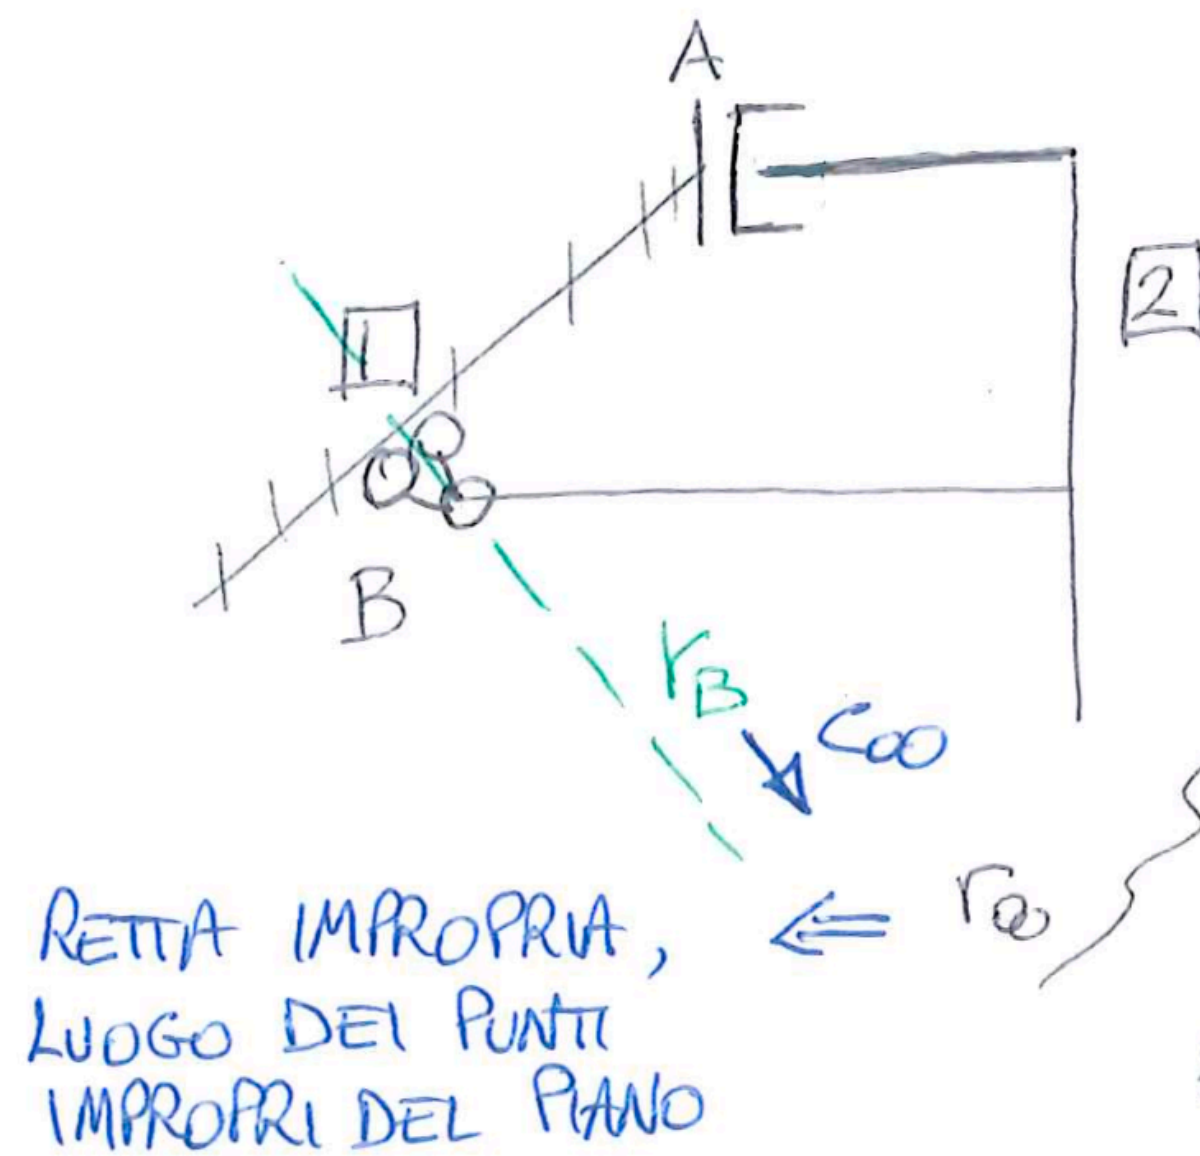 A
2
1
B
r_B
C∞
r∞
RETTA IMPROPRIA,
LUOGO DEI PUNTI
IMPROPRI DEL PIANO